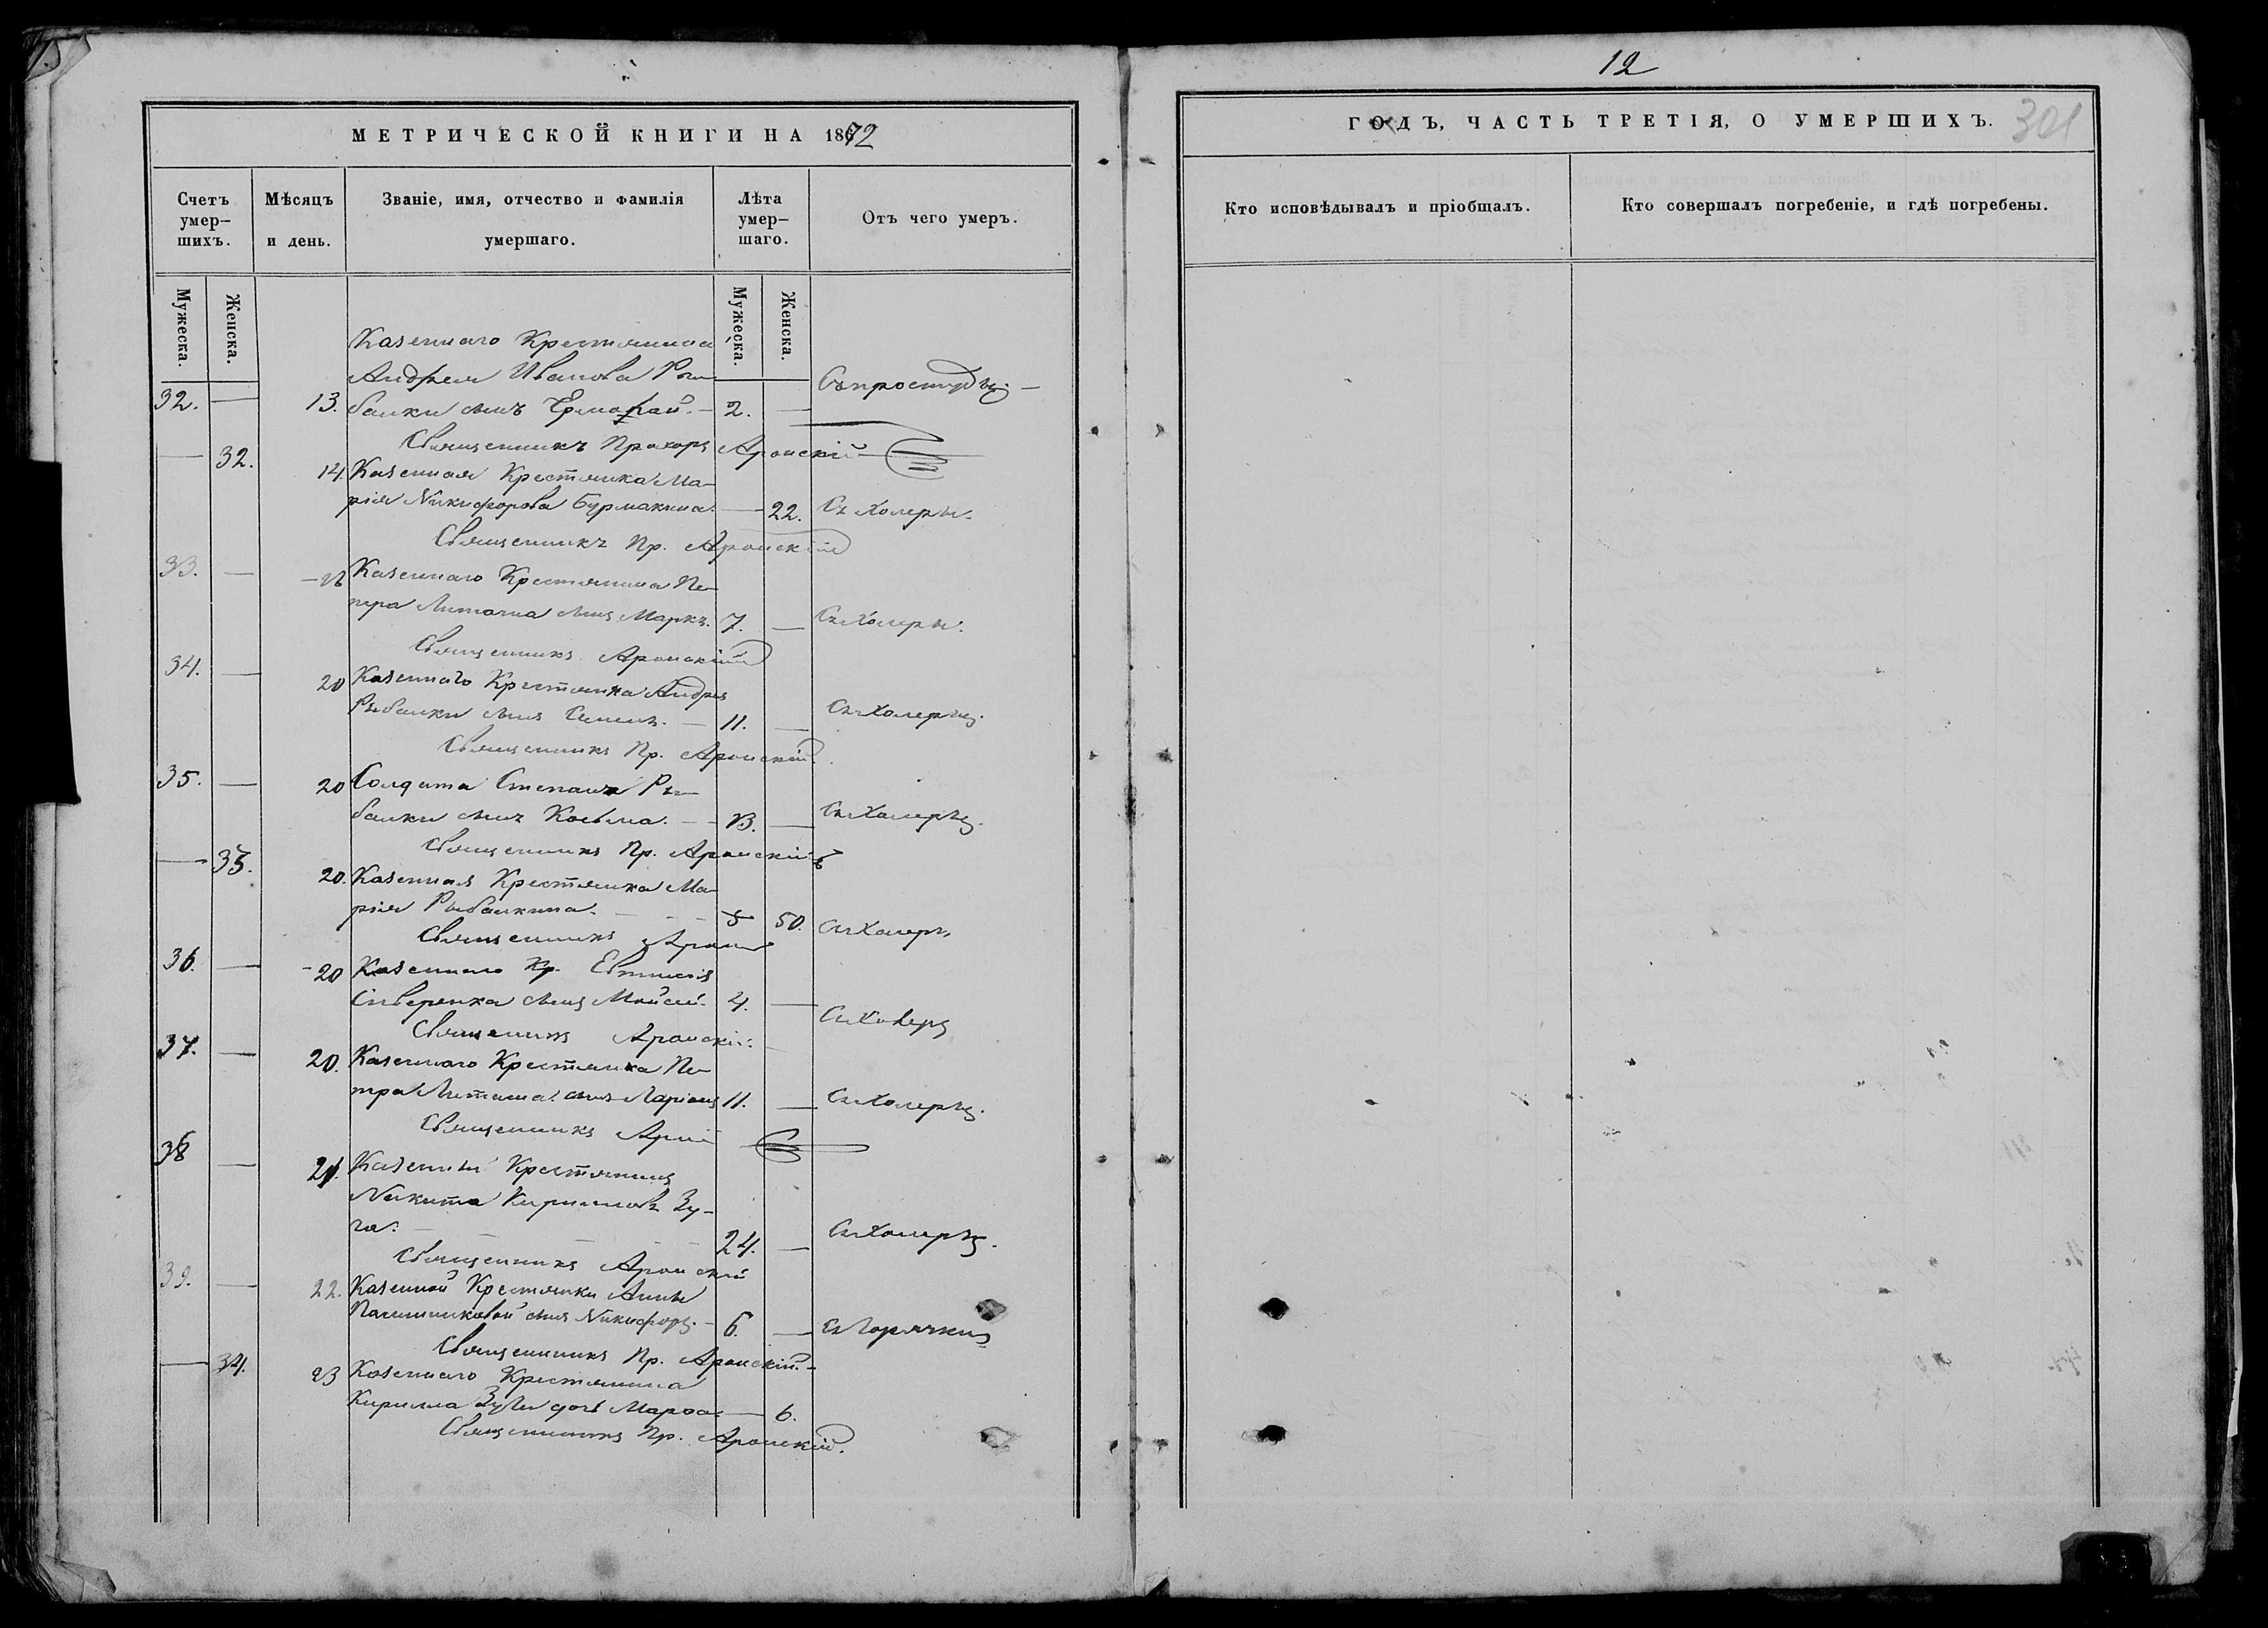 12
МЕТРИЧЕСКОЙ КНИГИ НА 1872
ГОДЪ, ЧАСТЬ ТРЕТІЯ, О УМЕРШИХЪ.
301
Счетъ умер-шихъ.
Мѣсяцъ и день.
Званіе, имя, отчество и фамилія умершаго.
Лѣта умер-шаго.
Отъ чего умеръ.
Кто исповѣдывалъ и пріобщалъ.
Кто совершалъ погребеніе, и гдѣ погребены.
Мужеска.
Женска.
Мужеска.
Женска.
Казеннаго Крестянина
Андрея Иванова Ры-
32. — 13. балки сынъ Ермолай. — 2. — Съ простуды. —
Священникъ Прохоръ Аронскій
— 32. 14. Казенная Крестянка Ма-
рія Никифорова Бурмакина. — 22. Съ Холеры.
Священникъ Пр. Аронскій
33. — Казеннаго Крестянина Пе-
тра сынъ Маркъ. 7. — Съ Холеры.
Священникъ Аронскій
34. — 20 Казеннаго Крестянина Андрея
Рыбалки сынъ Семенъ. — 11. — Съ Холеры.
Священникъ Пр. Аронскій.
35. — 20 Солдата Степана Ры-
балки сынъ Косьма. — 13. — Съ Холеры.
Священникъ Пр. Аронскій
— 33. 20. Казенная Крестянка Ма-
рія Рыбалкина. 50. Съ Холеры
Священникъ
36. — 20 Казеннаго Кр. Евтисія
сынъ Мойсей. 4. — Съ Холеры
Священникъ Аронскій.
37. — 20. Казеннаго Крестянина Пе-
тра сынъ Ларіонъ 11. — Съ Холеры.
Священникъ
38 — 21. Казенный Крестянинъ
Никита Кирилловъ Зу-
24. — Съ Холеры.
Священникъ Аронскій
39. — 22. Казенной Крестянки Анны
сынъ Никифоръ. — 6. — Съ Горячки
Священникъ Пр. Аронскій. —
— 34. 23 Казеннаго Крестянина
Кирилла дочь Марфа — 6.
Священникъ Пр. Аронскій.